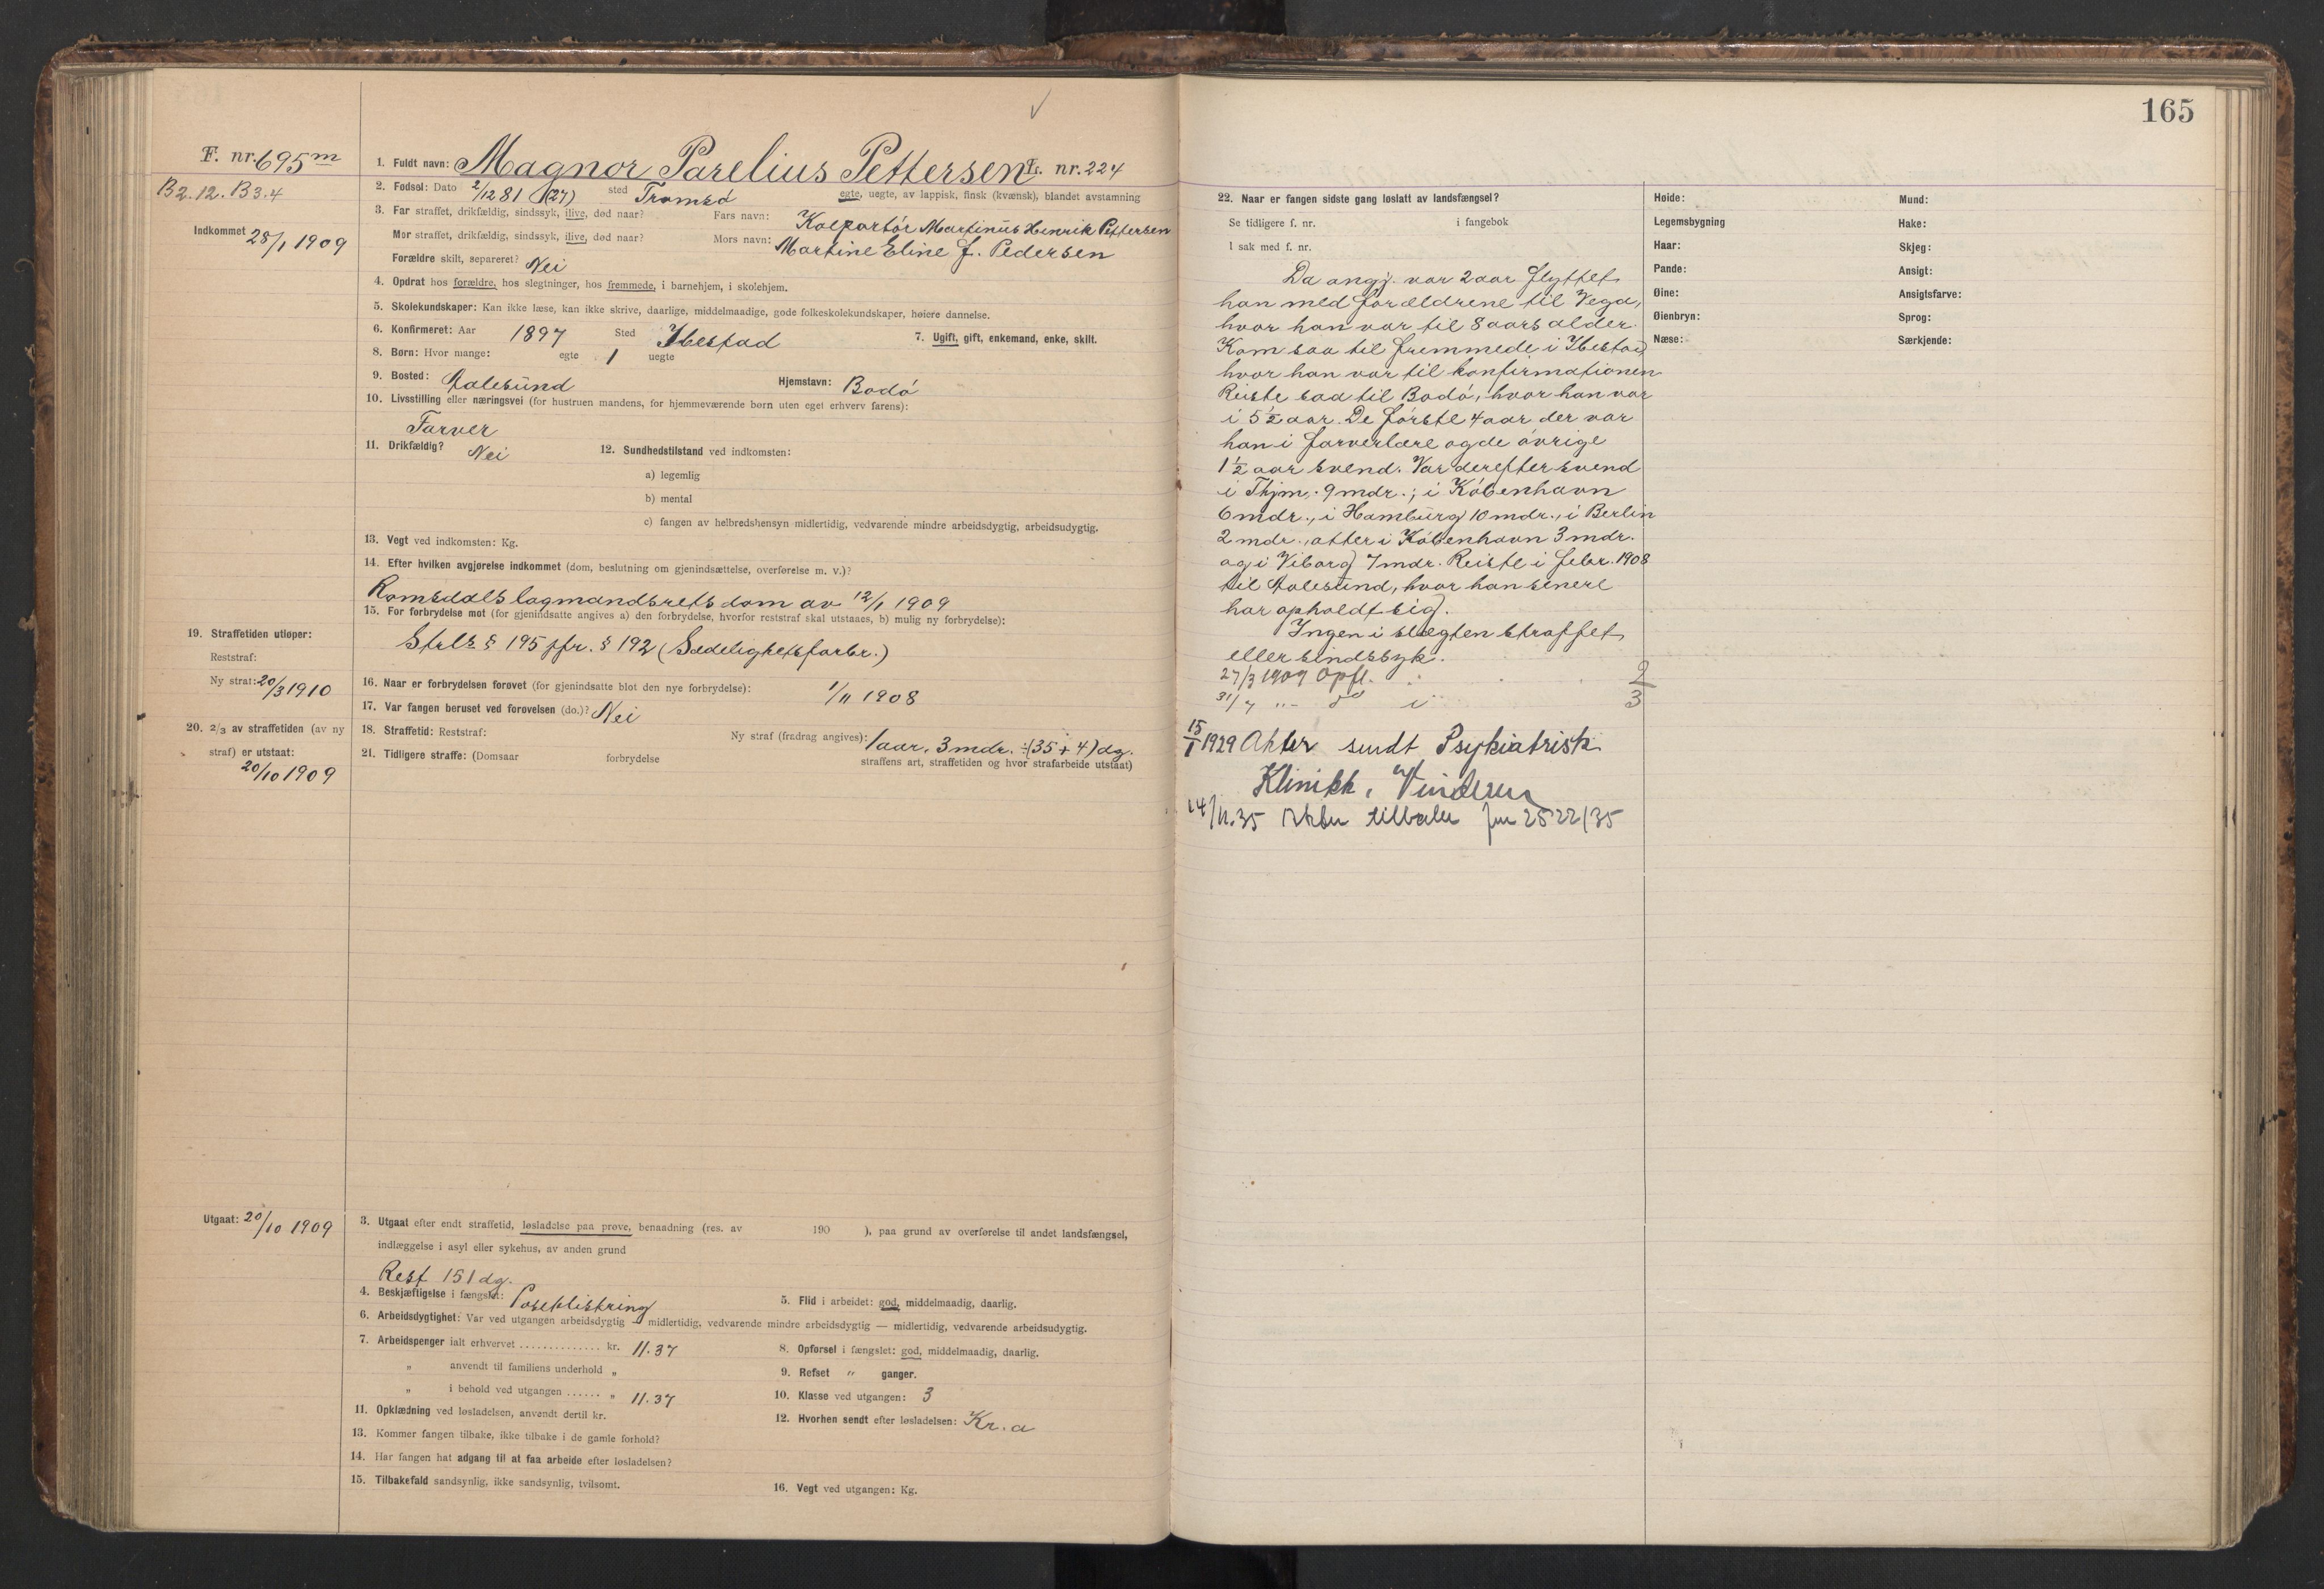 165
F. nr. 695m
B2.12. B3.4
1. Fuldt navn: Magnor Parelius Pettersen L. nr. 224
2. Fødsel: Dato 2/12 81 (27) sted Tromsö egte, uegte, av lappisk, finsk (kvænsk), blandet avstamning
3. Far straffet, drikfældig, sindssyk, ilive, død naar? Fars navn: Kolportör Martinus Henrik Pettersen
Indkommet 28/1 1909
Mor straffet, drikfældig, sindssyk, ilive, død naar? Mors navn: Martine Eline J. Pedersen
Forældre skilt, separeret? Nei
4. Opdrat hos forældre, hos slegtninger, hos fremmede, i barnehjem, i skolehjem.
5. Skolekundskaper: Kan ikke læse, kan ikke skrive, daarlige, middelmaadige, gode folkeskolekundskaper, høiere dannelse.
6. Konfirmeret: Aar 1897 Sted Ibestad 7. Ugift, gift, enkemand, enke, skilt.
8. Børn: Hvor mange: egte 1 uegte
9. Bosted: Aalesund Hjemstavn: Bodö
10. Livsstilling eller næringsvei (for hustruen mandens, for hjemmeværende børn uten eget erhverv farens):
Farver
11. Drikfældig? Nei 12. Sundhedstilstand ved indkomsten:
a) legemlig
b) mental
c) fangen av helbredshensyn midlertidig, vedvarende mindre arbeidsdygtig, arbeidsudygtig.
13. Vegt ved indkomsten: Kg.
14. Efter hvilken avgjørelse indkommet (dom, beslutning om gjenindsættelse, overførelse m. v.)?
Romsdals lagmandsrets dom av 12/1 1909
15. For forbrydelse mot (for gjenindsatte angives a) den forbrydelse, hvorfor reststraf skal utstaaes, b) mulig ny forbrydelse):
Strls § 195 jfr. § 192 (Sædelighetsforbr.)
19. Straffetiden utløper:
Reststraf:
Ny straf: 20/3 1910
16. Naar er forbrydelsen forøvet (for gjenindsatte blot den nye forbrydelse): 1/11 1908
17. Var fangen beruset ved forøvelsen (do.)? Nei
20. 2/3 av straffetiden (av ny
straf) er utstaat:
20/10 1909
18. Straffetid: Reststraf: Ny straf (fradrag angives): 1 aar, 3 mdr. ÷ (35 + 4) dg.
21. Tidligere straffe: (Domsaar forbrydelse straffens art, straffetiden og hvor strafarbeide utstaat)
Utgaat: 20/10 1909
3. Utgaat efter endt straffetid, løsladelse paa prøve, benaadning (res. av 190 ), paa grund av overførelse til andet landsfængsel,
indlæggelse i asyl eller sykehus, av anden grund
Rest 151 dg.
4. Beskjæftigelse i fængslet: Poseklistring 5. Flid i arbeidet: god, middelmaadig, daarlig.
6. Arbeidsdygtighet: Var ved utgangen arbeidsdygtig — midlertidig, vedvarende mindre arbeidsdygtig — midlertidig, vedvarende arbeidsudygtig.
7. Arbeidspenger ialt erhvervet .............. kr. 11.37 8. Opførsel i fængslet: god, middelmaadig, daarlig.
„ anvendt til familiens underhold „ 9. Refset " ganger.
„ i behold ved utgangen ...... „ 11.37 10. Klasse ved utgangen: 3
11. Opklædning ved løsladelsen, anvendt dertil kr. 12. Hvorhen sendt efter løsladelsen: Kr.a
13. Kommer fangen tilbake, ikke tilbake i de gamle forhold?
14. Har fangen hat adgang til at faa arbeide efter løsladelsen?
15. Tilbakefald sandsynlig, ikke sandsynlig, tvilsomt. 16. Vegt ved utgangen: Kg.
22. Naar er fangen sidste gang løslatt av landsfængsel?
Se tidligere f. nr. i fangebok
I sak med f. nr.
Da angj. var 2 aar flyttet
han med forældrene til Vega,
hvor han var til 8 aars alder.
Kom saa til fremmede i Ibestad,
hvor han var til konfirmationen
Reiste saa til Bodö, hvor han var
i 5 1/2 aar. De förste 4 aar der var
han i farverlære og de övrige
1 1/2 aar svend. Var derefter svend
i Thjm. 9 mdr.; i Köbenhavn
6 mdr., i Hamburg 10 mdr., i Berlin
2 mdr., atter i Köbenhavn 3 mdr.
og i Viborg 7 mdr. Reiste i febr. 1908
til Aalesund, hvor han senere
har opholdt sig.
Ingen i slægten straffet
eller sindssyk.
27/3 1909 Opfl. 2
31/7 " - do i 3
15/1 1929 Akter sendt Psykiatrisk
Klinikk, Vinderen
14/11.35 Akter tilbake jnr 2522/35
Høide:
Legemsbygning
Haar:
Pande:
Øine:
Øienbryn:
Næse:
Mund:
Hake:
Skjeg:
Ansigt:
Ansigtsfarve:
Sprog:
Særkjende: